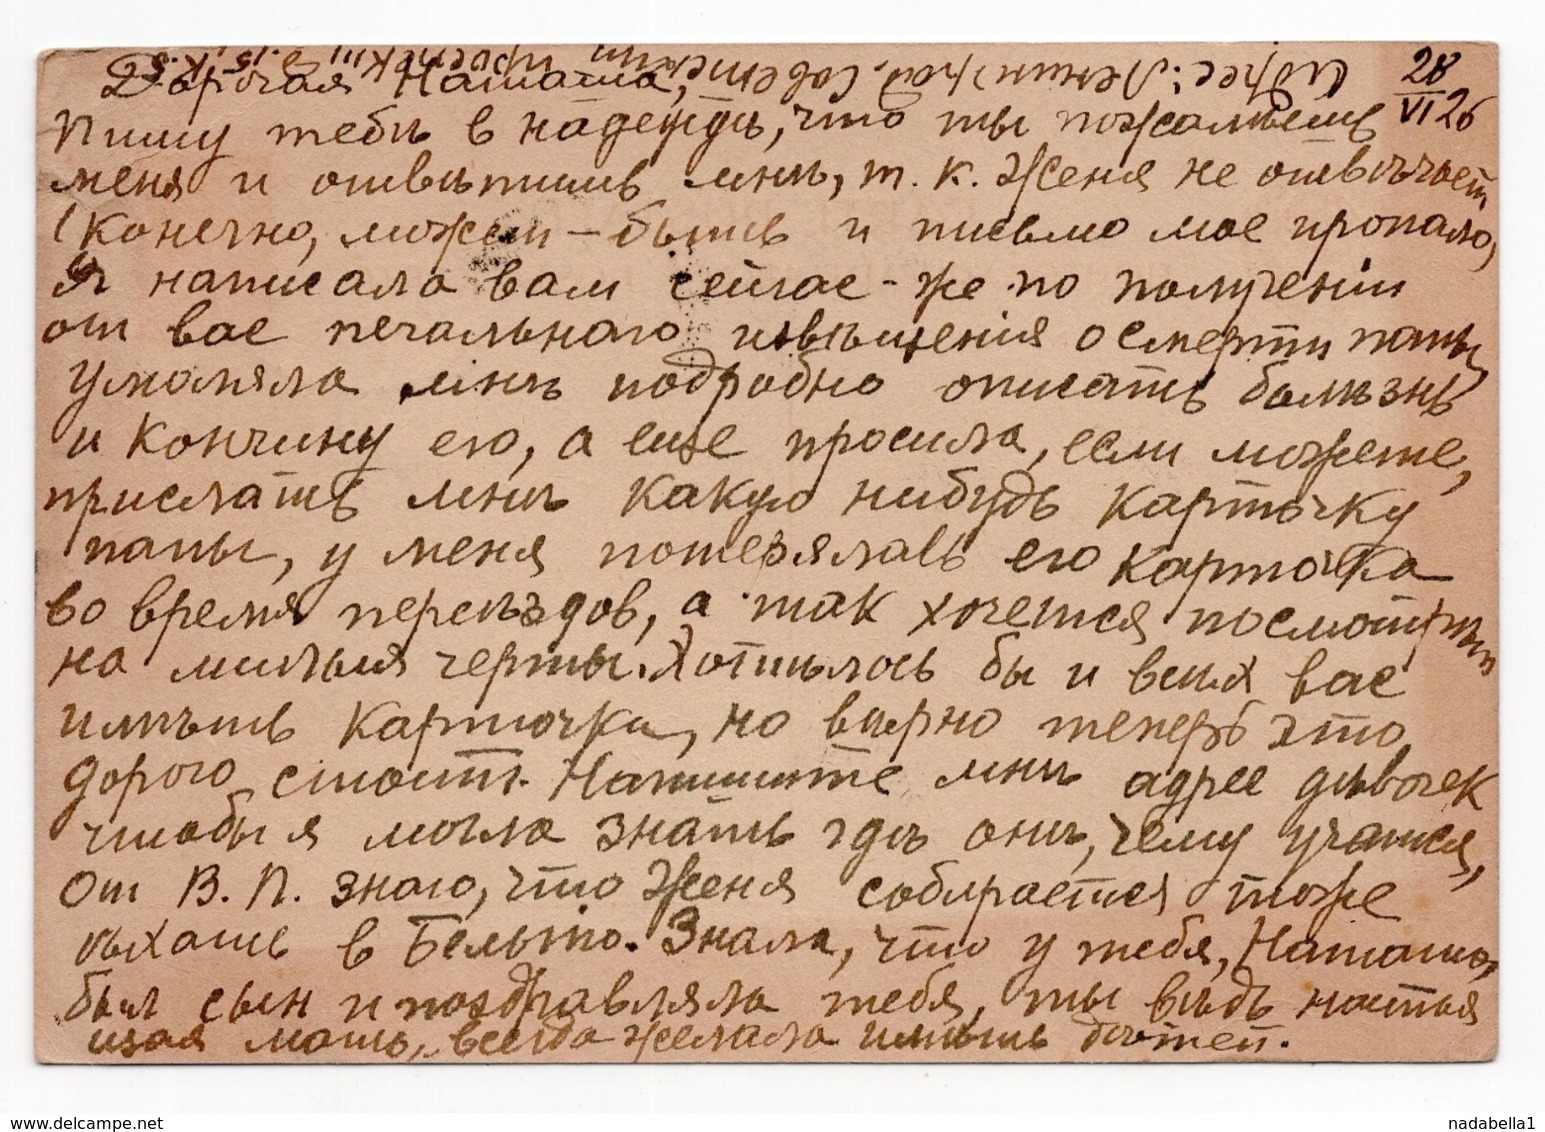 28
VI 26
Адрес: Ленинград, Советский
Дорогая Наташа,
Пишу тебѣ в надеждѣ, что ты пожалѣешь
меня и отвѣтишь мнѣ, т. к. Женя не отвѣчает
(Конечно, может-быть и письмо мое пропало)
Я написала вам сейчас-же по полученіи
от вас печальнаго извѣщенія о смерти папы
умоляла мнѣ подробно описать болѣзнь
и кончину его, а еще просила, если можете,
прислать мнѣ какую нибудь карточку
папы, у меня потерялась его карточка
во время переѣздов, а так хочется посмотрѣть
на милыя черты. Хотѣлось бы и всѣх вас
имѣть карточки, но вѣрно теперь это
дорого стоит. Напишите мнѣ адрес дѣвочек
чтобы я могла знать гдѣ онѣ, чему учатся,
От В. П. знаю, что Женя собирается тоже
ѣхать в Бельгію. Знала, что у тебя, Наташа,
был сын и поздравляла тебя, ты вѣдь настоя
щая мать, всегда желала имѣть дѣтей.
nadabella1